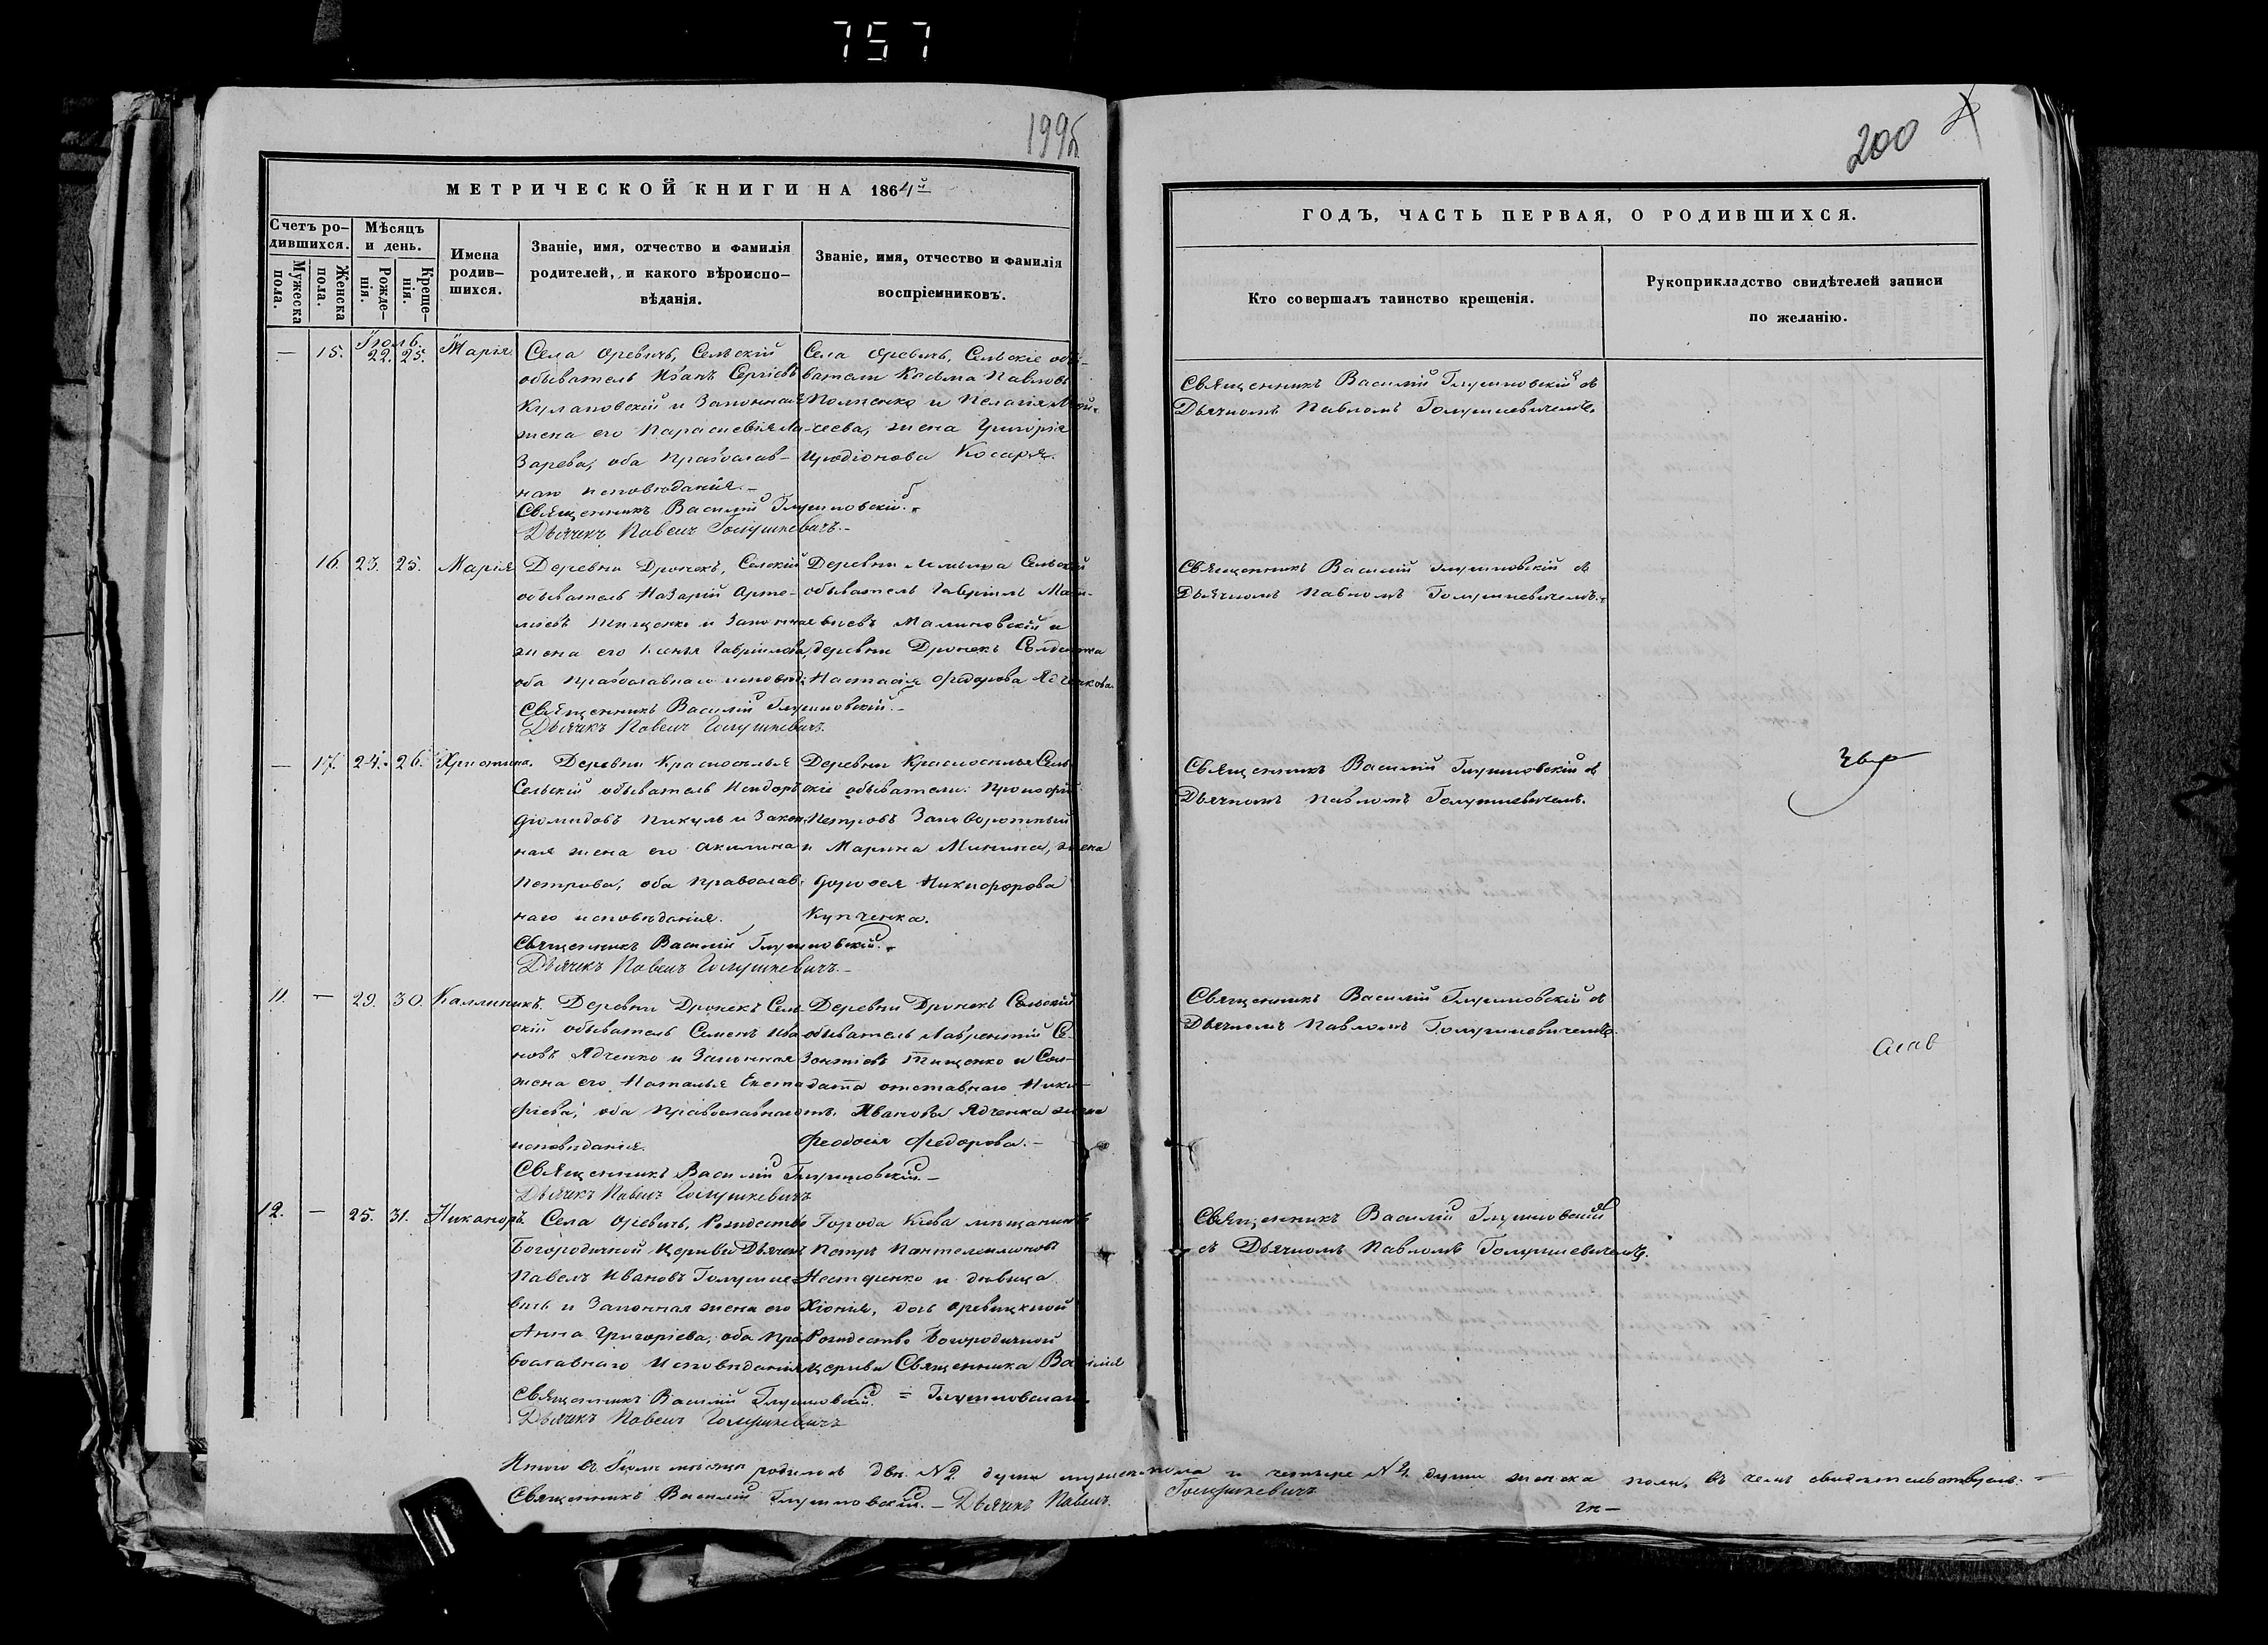 757
199б
200
МЕТРИЧЕСКОЙ КНИГИ НА 1864й
ГОДЪ, ЧАСТЬ ПЕРВАЯ, О РОДИВШИХСЯ.
Счетъ ро-
дившихся.
Мужеска
пола.
Женска
пола.
Мѣсяцъ
и день.
Рожде-
нія.
Креще-
нія.
Имена
родив-
шихся.
Званіе, имя, отчество и фамилія
родителей, и какого вѣроиспо-
вѣданія.
Званіе, имя, отчество и фамилія
воспріемниковъ.
Кто совершалъ таинство крещенія.
Рукоприкладство свидѣтелей записи
по желанію.
Іюль.
— 15. 22. 25. Марія.
Села Оревичъ, Сельскій
обыватель Иванъ Сергіевъ
Кулаковскій и Законная
жена его Параскевія Ла-
зарева, оба Православ-
наго исповѣданія.—
Священникъ Василій Глушковскій.
Дьячекъ Павелъ Голушкевичъ.—
Села Оревичъ, Сельскіе обы-
ватели Косьма Павловъ
и Пелагія Мой-
сеева, жена Григорія
Иродіонова Косаря.
Священникъ Василій Глушковскій съ
Дьячкомъ Павломъ Голушкевичемъ.
16. 23. 25. Марія
Деревни Дронекъ, Селскій
обыватель Назарій Арте-
міевъ Тищенко и Законная
жена его Ксенія Гавріилова,
оба православнаго исповѣд:
Священникъ Василій Глушковскій.—
Дьячекъ Павелъ Голушкевичъ.
Деревни Сельскій
обыватель Гавріилъ Мат-
віевъ Малиновскій и
деревни Дронекъ Солдатка
Настасія Федорова Ядченкова.
Священникъ Василій Глушковскій съ
Дьячкомъ Павломъ Голушкевичемъ.
— 17. 24. 26. Христина.
Деревни Красноселья
Сельскій обыватель Исидоръ
Діомидовъ Пикуль и Закон-
ная жена его Акилина
Петрова, оба православ-
наго исповѣданія.
Священникъ Василій Глушковскій.
Дьячекъ Павелъ Голушкевичъ.—
Деревни Красноселья Сель-
скіе обыватели: Прокофій
Петровъ Заневоротный
и Марина Минина, жена
Дорофея Никифорова
Купченка.
Священникъ Василій Глушковскій съ
Дьячкомъ Павломъ Голушкевичемъ.
11. — 29. 30. Каллиникъ.
Деревни Дронекъ Сель-
скій обыватель Семенъ Ива-
новъ Ядченко и Законная
жена его Наталья Евста-
фіева, оба Православнаго
исповѣданія.
Священникъ Василій Глушковскій.—
Дьячекъ Павелъ Голушкевичъ
Деревни Дронекъ Сельскій
обыватель Лаврентій Со-
зонтіевъ Тищенко и Сол-
дата отставнаго Ники-
ты Иванова Ядченка жена
Феодосія Федорова.—
Священникъ Василій Глушковскій съ
Дьячкомъ Павломъ Голушкевичемъ.
12. — 25. 31. Никаноръ.
Села Оревичъ, Рождество
Богородичной Церкви Дьячекъ
Павелъ Ивановъ Голушке-
вичъ и Законная жена его
Анна Григоріева, оба Пра-
вославнаго Исповѣданія
Священникъ Василій Глушковскій.
Дьячекъ Павелъ Голушкевичъ
Города Кіева мѣщанинъ
Петръ Пантелеимоновъ
Нестеренко и дѣвица
Хіонія, дочь Оревицкой
Рождество Богородичной
церкви Священника Василія
= Глушковскаго.
Священникъ Василій Глушковскій
съ Дьячкомъ Павломъ Голушкевичемъ.
Итого въ Іюлѣ мѣсяцѣ родилось двѣ № 2 души мужеска пола и четыре № 4 души женска пола, въ чемъ свидѣтельствуемъ.
Священникъ Василій Глушковскій.— Дьячекъ Павелъ Голушкевичъ